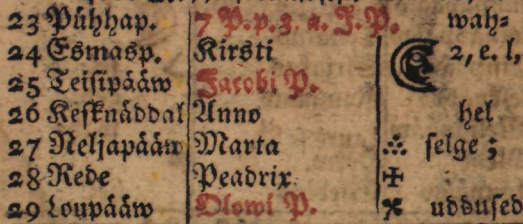 23 Pühhap. 7 P. p. 3. a. J. P. wah⸗
24 Esmasp. Kirsti 2, e. l,
25 Teisipääw Jacobi P.
26 Kesknäddal Anno hel
27 Neljapääw Marta selge;
28 Rede Peadrix
29 Loupääw Olowi P. uddused